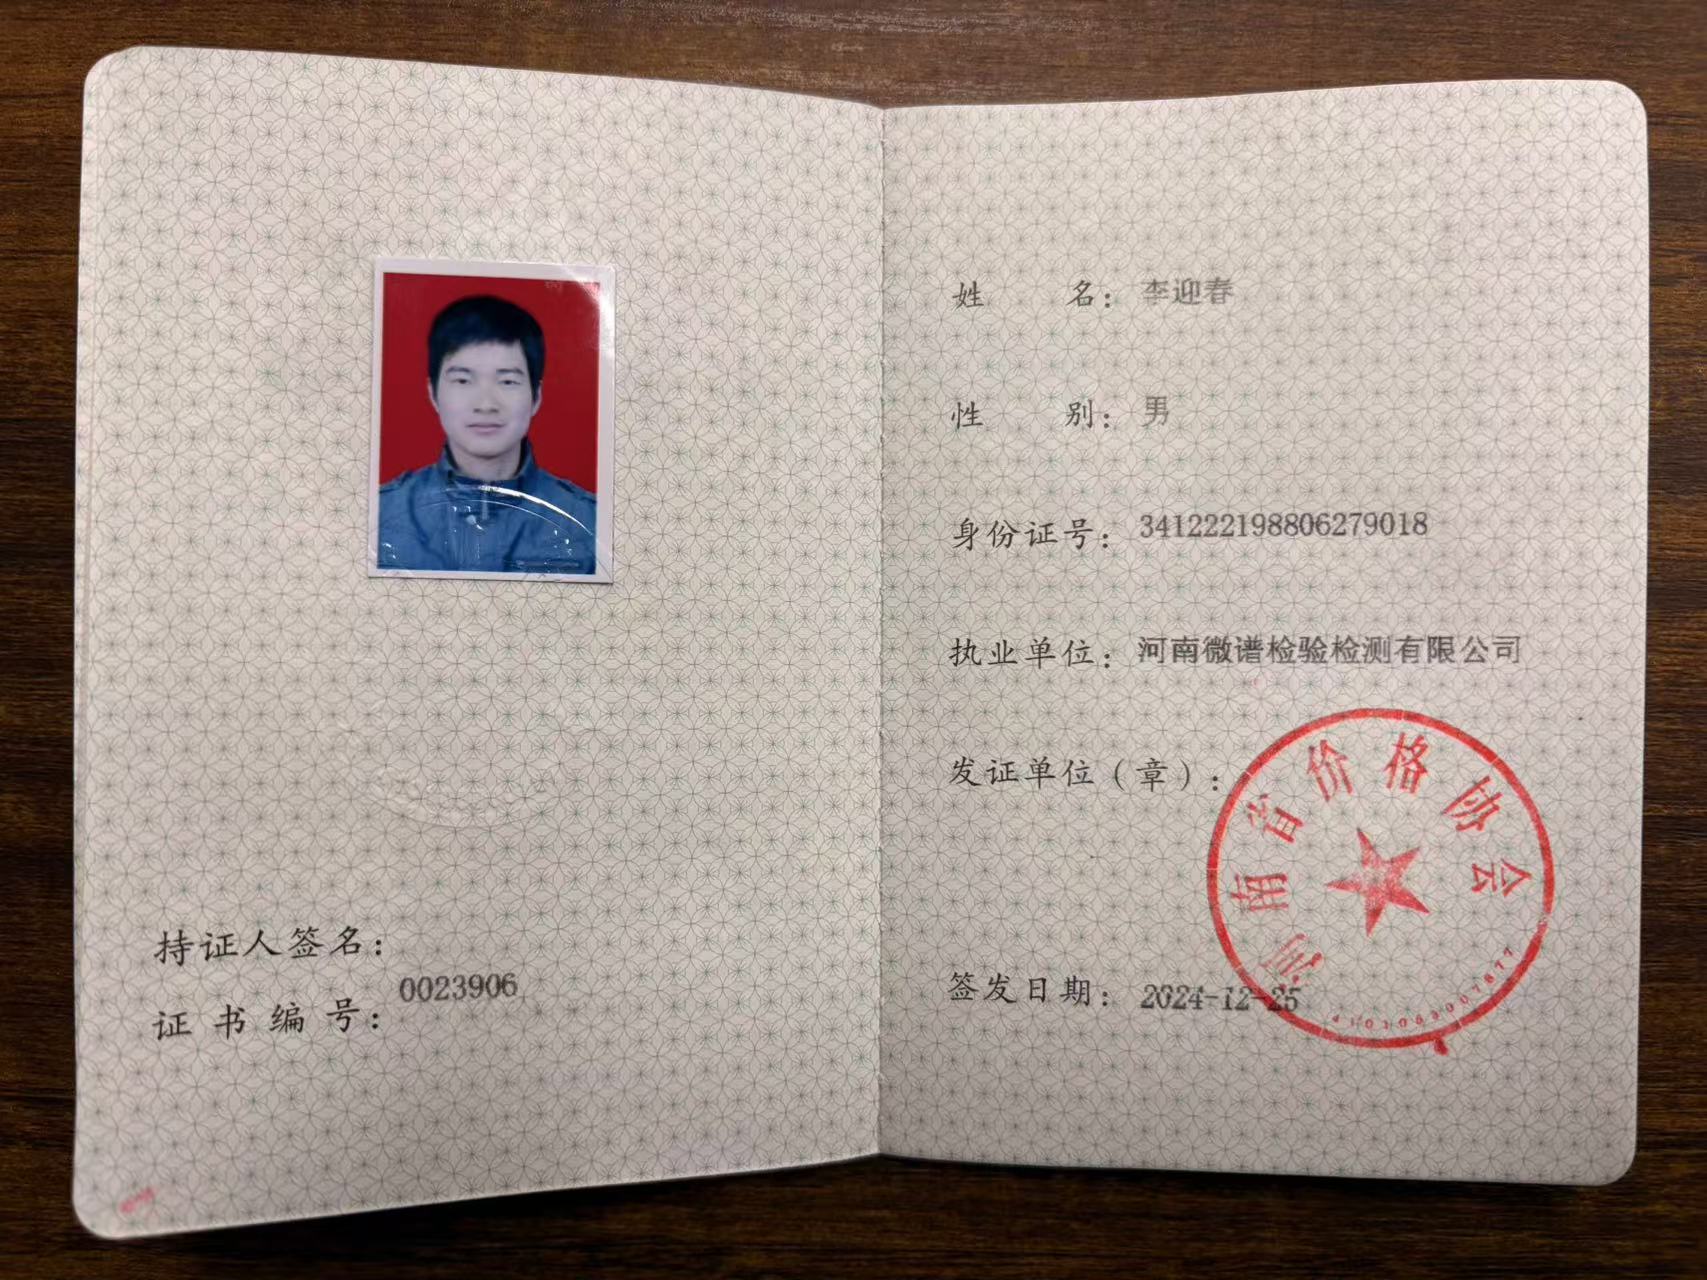 持证人签名：
证书编号：0023906
姓名：李迎春
性别：男
身份证号：341222198806279018
执业单位：河南微谱检验检测有限公司
发证单位（章）：
河南省价格协会
签发日期：2024-12-25